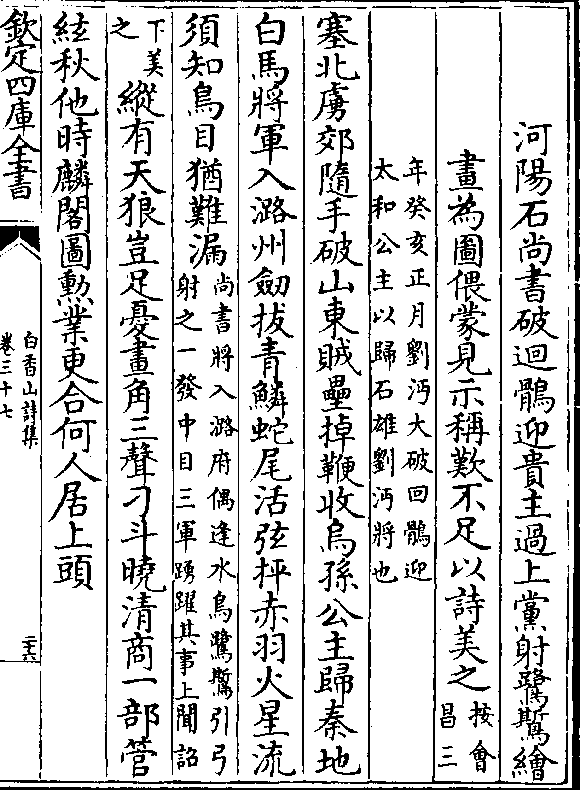 河陽石尚書破迴鶻迎貴主過上黨射鷺鷥繪
畫為圖偎蒙見示稱歎不足以詩美之
按會
昌三
年癸亥正月劉沔大破回鶻迎
太和公主以歸石雄劉沔將也
塞北虜郊隨手破山東賊壘掉鞭收烏孫公主歸秦地
白馬將軍入潞州劒拔青鱗蛇尾活弦抨赤羽火星流
須知鳥目猶難漏
尚書將入潞府偶逢水鳥鷺鷥引弓
射之一發中目三軍踴躍其事上聞詔
下美
之
縱有天狼豈足憂畫角三聲刁斗曉清商一部管
絃秋他時麟閣圖勳業更合何人居上頭
欽定四庫全書
白香山詩集
卷三十七
二十六